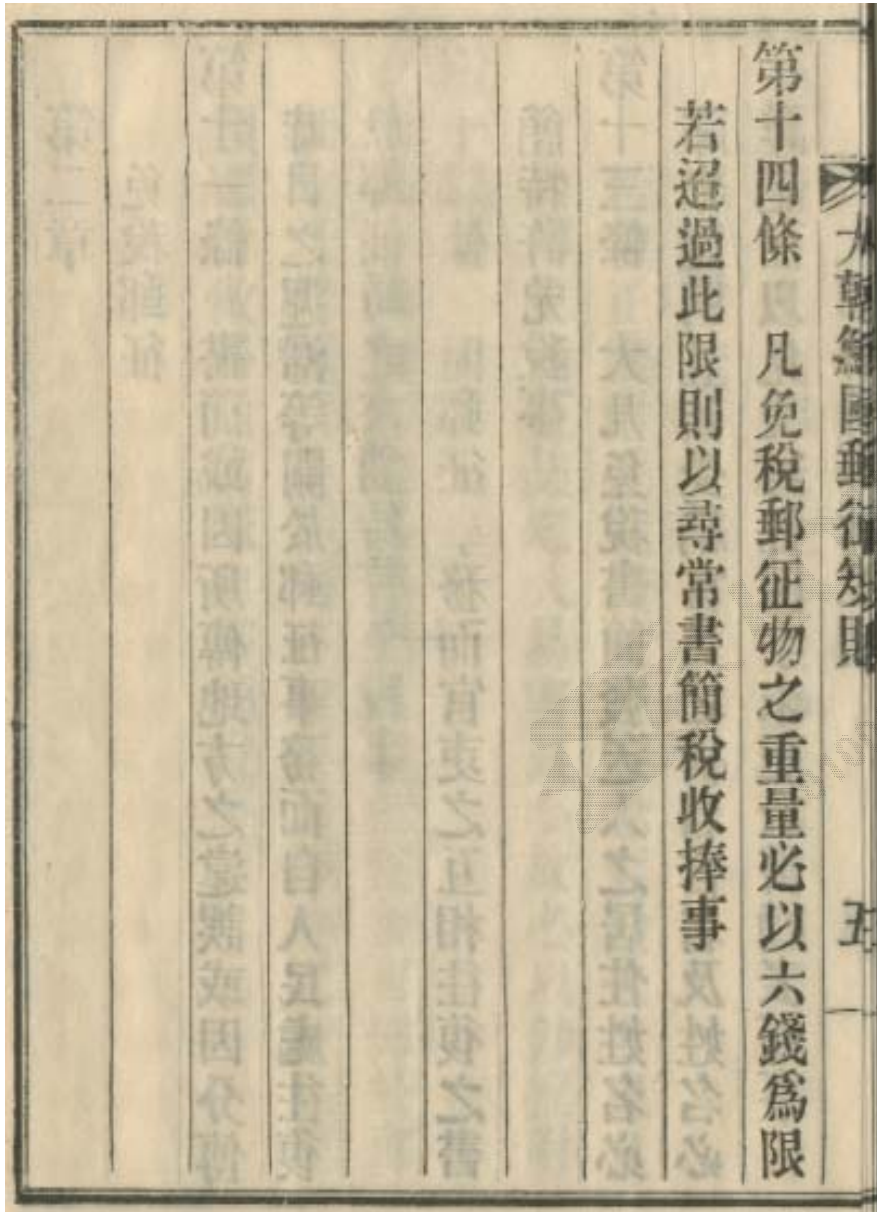 大朝鮮國郵征規則
五
第十四條 凡免稅郵征物之重量必以六錢爲限
若迢過此限則以尋常書簡稅收捧事